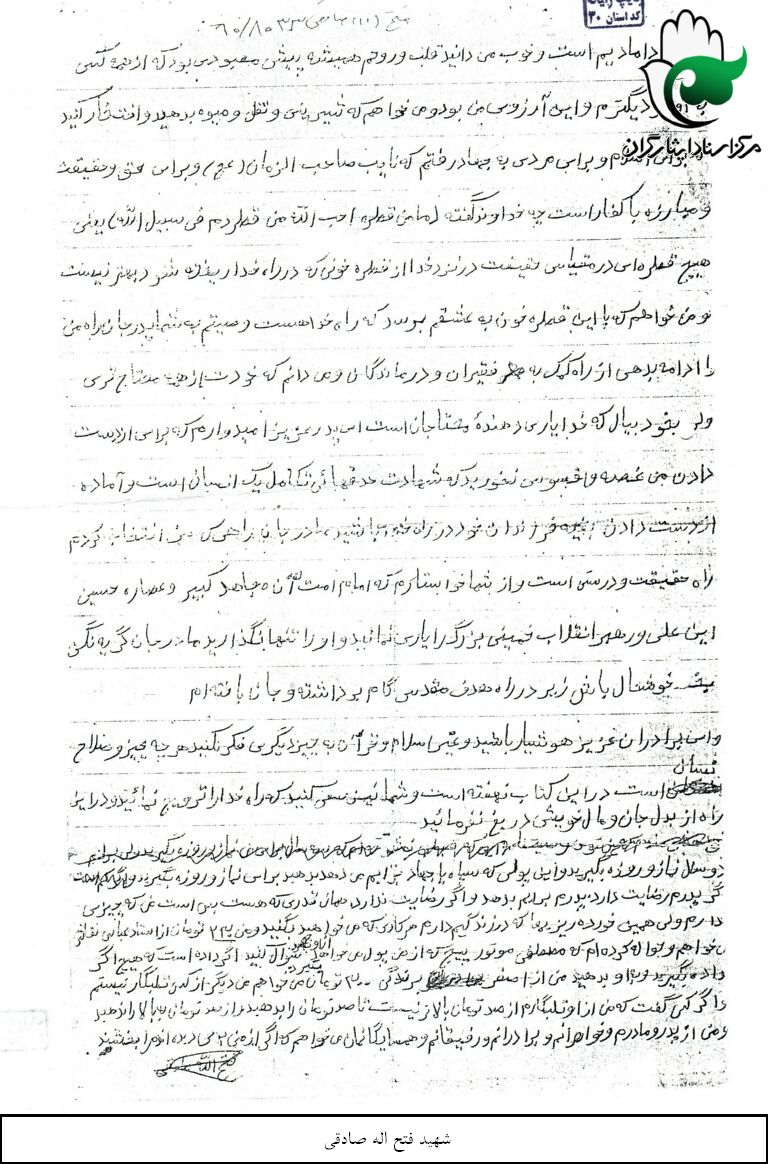 کد استان ۳۰
مرکز اسناد ایثارگران
دامادیم است و خوب می دانید قلب و روحم همیشه پیش معبودی بود که از همه کسی
دیگرم و این آرزوی من بود و می خواهم که شیرینی و نقل و میوه بدهید و افتخار کنید
برای اسلام و برای مردمی به جهاد رفتم که نایب صاحب الزمان (عج) و برای حق و حقیقت
و مبارزه با کفار است چه خداوند گفته (ما من قطره احب الله من قطر دم فی سبیل الله) یعنی
هیچ قطره ای در مقیاس حقیقت در نزد خدا از قطره خونی که در راه خدا ریخته شود بهتر نیست
و می خواهم که با این قطره خون به عشقم برسم که راه خداست وصیتم به شما پدر جان راه من
را ادامه بدهی از راه کمک به فقیران و درماندگان و می دانم که خودت از همه محتاج تری
ولی بخود ببال که خدا یاری دهندهٔ محتاجان است ای پدر عزیز امیدوارم که برای از دست
دادن من غصه و افسوس نخورید که شهادت حد نهائی تکامل یک انسان است و آماده
از دست دادن بقیه فرزندان خود در راه خدا باشید مادر جان راهی که من انتخاب کردم
راه حقیقت و درستی است و از شما خواستارم که امام امت آن مجاهد کبیر و عصاره حسین
ابن علی و رهبر انقلاب خمینی بزرگ را یاری نمائید و او را تنها نگذارید مادر جان گریه نکن
خوشحال باش زیر در راه هدف مقدسی گام برداشته و جان باخته ام
و ای برادران عزیز هوشیار باشید و غیر اسلام و قرآن به چیز دیگری فکر نکنید هر چه چیز و صلاح
انسان
است در این کتاب نهفته است و شما نیز سعی کنید که راه خدا را ترویج نمائید و در این
راه از بذل جان و مال خویش دریغ نفرمائید
دو سال نماز و روزه بگیرید و این پولی که سپاه یا جهاد برایم می دهد بدهید برای نماز و روزه بگیرند
گر پدرم رضایت دارد پدرم برایم بدهد و اگر رضایت ندارد همان قدری که هست بس است من که چیزی
دارم ولی همین خورده ریزها که دارند گیم دارم هر کاری که می خواهید بکنید و من
می خواهم و حواله کرده ام که مصطفی موتور پیچ که از من پول می خواهد سؤال کنید اگر داده است که هیچ اگر
داده بگیرید و به او بدهید من از اصغر تومان می خواهم من دیگر از کسی طلبکار نیستم
و اگر کسی گفت که من از او طلبکارم از صد تومان بالاتر نیست تا صد تومان را بدهید و از صد تومان به بالا را ندهید
و من از پدر و مادرم و خواهرانم و برادرانم و رفیقانم و همسایگانمان می خواهم که اگر از من بدی دیده اند مرا ببخشند
فتح الله صادقی
شهید فتح اله صادقی